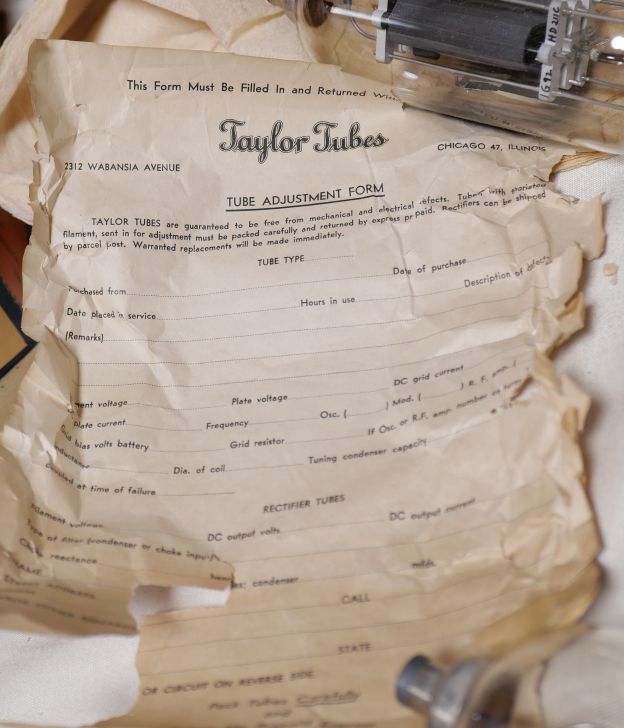 This Form Must Be Filled In and Returned
Taylor Tubes
2312 WABANSIA AVENUE
CHICAGO 47, ILLINOIS
TUBE ADJUSTMENT FORM
TAYLOR TUBES are guaranteed to be free from mechanical and electrical efects. Tubes with thoriated
filament, sent in for adjustment must be packed carefully and returned by express pr paid. Rectifiers can be shipped
by parcel post. Warranted replacements will be made immediately.
TUBE TYPE
Purchased from Date of purchase
Date placed in service Hours in use Description of defects
(Remarks)
ment voltage Plate voltage DC grid current
Plate current Frequency Osc. ( ) Mod. ( ) R. F. amp. (
Grid bias volts battery Grid resistor If Osc. or R.F. amp. number of turns
inductance Dia. of coil Tuning condenser capacity
at time of failure
RECTIFIER TUBES
Filament voltage DC output volts DC output current
Type of filter (condenser or choke input)
Choke reactance henries; condenser mfds.
NAME CALL
STREET ADDRESS
STATE
OR CIRCUIT ON REVERSE SIDE
Pack Tubes Carefully
and